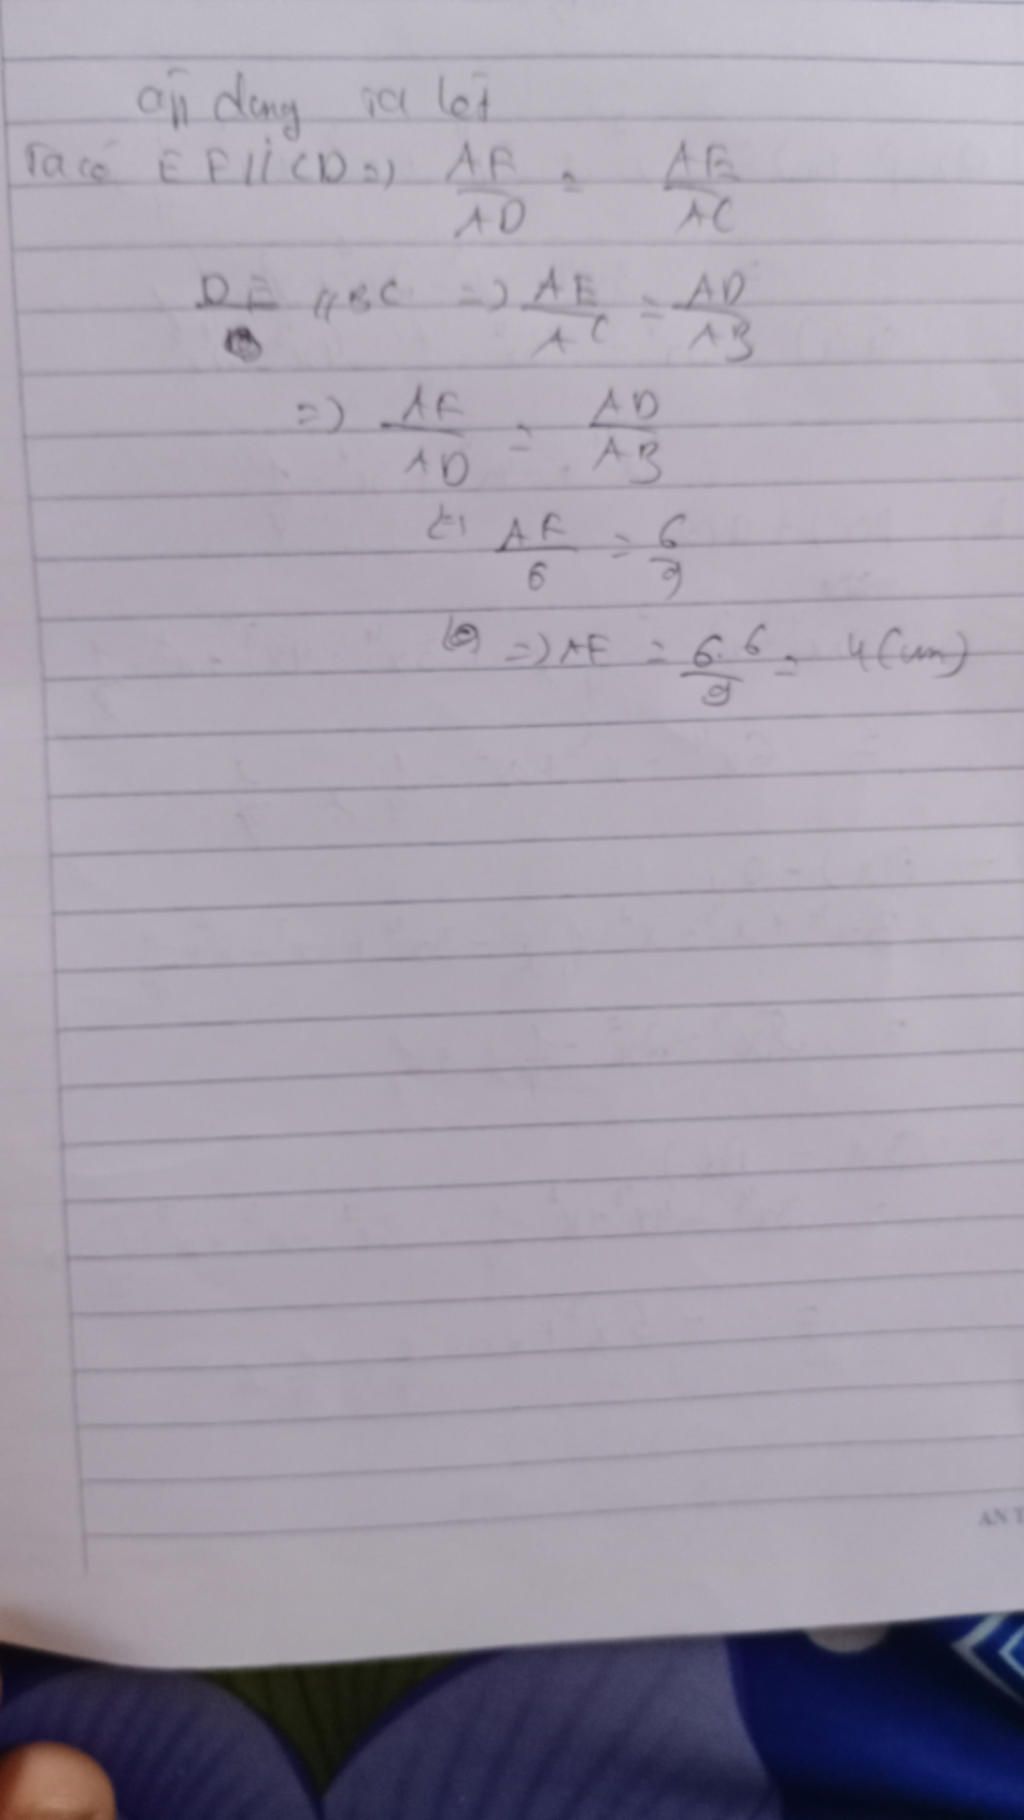 áp dụng ta lét
Ta có EF // CD => AF/AD = AE/AC
DE // BC => AE/AC = AD/AB
=> AF/AD = AD/AB
AF/6 = 6/9
=> AF = 6.6/9 = 4 (cm)